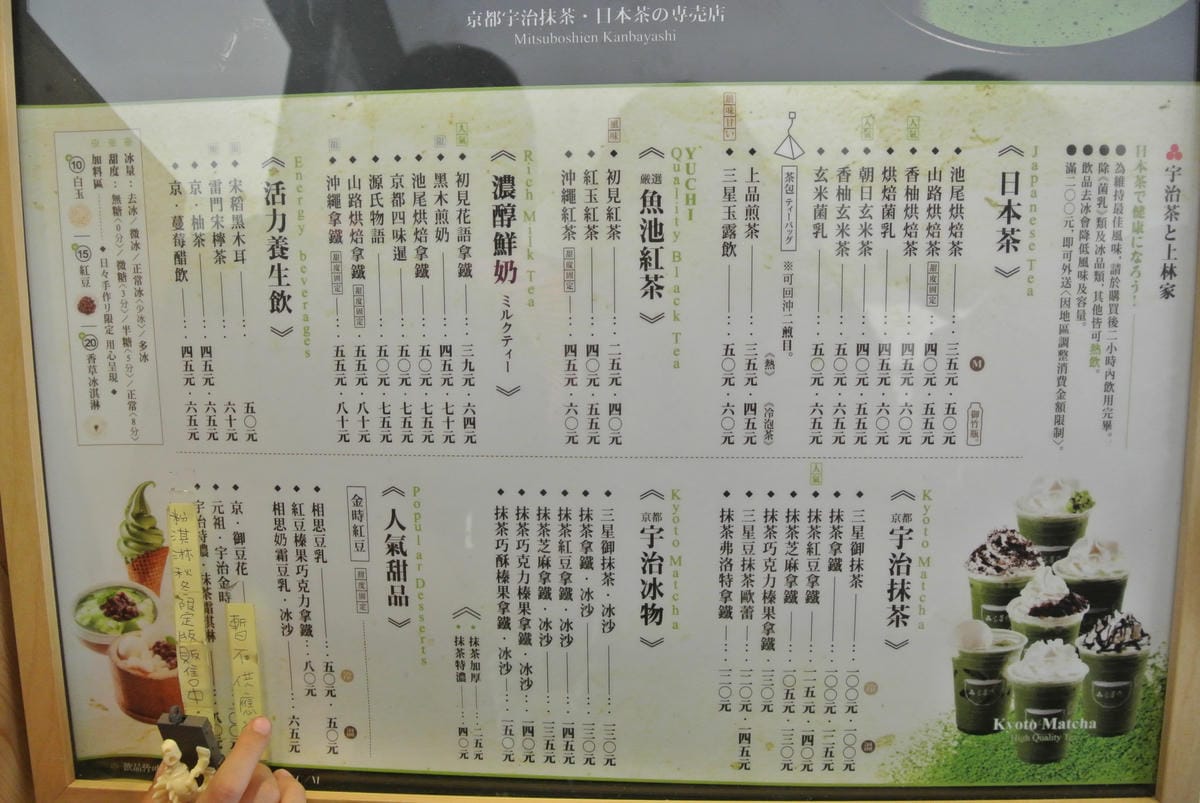 京都宇治抹茶・日本茶の専売店
Mitsuboshien Kanbayashi
宇治茶と上林家
日本茶で健康になろう!
●為維持最佳風味，請於購買後二小時內飲用完畢。
●除《菌乳》類及冰品類，其他皆可熱飲。
●飲品去冰會降低風味及容量。
●滿二〇〇元，即可外送〈因地區調整消費金額限制〉。
Japanese Tea
《日本茶》
M 御竹瓶
池尾烘焙茶 三五元・五〇元
山路烘焙茶 甜度固定 四〇元・五五元
人氣 香柚烘焙茶 四五元・六〇元
烘焙菌乳 四五元・六〇元
人氣 朝日玄米茶 四〇元・五五元
香柚玄米茶 四五元・六五元
玄米菌乳 五〇元・六五元
茶包 ティーバッグ ※可回沖二煎目。
《熱》 《冷泡茶》
上品煎茶 三五元・四五元
韻味甘い 三星玉露飲 五〇元・六〇元
YUCHI
Quality Black Tea
《嚴選 魚池紅茶》
風味 初見紅茶 二五元・四〇元
紅玉紅茶 四〇元・五五元
沖繩紅茶 甜度固定 四五元・六〇元
Rich Milk Tea
《濃醇鮮奶 ミルクティー》
人氣 初見花語拿鐵 三九元・六四元
黑木煎奶 四五元・七十元
池尾烘焙拿鐵 五〇元・七五元
京都四味暹 五〇元・七五元
源氏物語 五〇元・七五元
山路烘焙拿鐵 甜度固定 五五元・八十元
沖繩鐵拿鐵 甜度固定 五五元・八十元
Energy beverages
《活力養生飲》
宋稻黑木耳 五〇元
雷門宋檸茶 六十元
京・柚茶 四五元・六五元
京・蔓莓醋飲 四五元・六五元
冰量：去冰／微冰／正常冰〈少冰〉／多冰
甜度：無糖〈0分〉／微糖〈3分〉／半糖〈5分〉／正常〈8分〉
加料區 ◆日々手作り限定 用心呈現◆
⑩白玉 ⑮紅豆 ⑳香草冰淇淋
Kyoto Matcha
《京都 宇治抹茶》
三星御抹茶 一〇〇元・一〇〇元
抹茶拿鐵 一〇〇元・一二五元
人氣 抹茶紅豆拿鐵 一一五元・一四〇元
抹茶芝麻拿鐵 一〇五元・一三〇元
抹茶巧克力榛果拿鐵 一三〇元
三星豆抹茶歐蕾 一二〇元・一四五元
抹茶弗洛特拿鐵 一二〇元
Kyoto Matcha
《京都 宇治冰物》
三星御抹茶・冰沙 一三〇元
抹茶拿鐵・冰沙 一三〇元
抹茶紅豆拿鐵・冰沙 一四五元
抹茶芝麻拿鐵・冰沙 一三五元
抹茶巧克力榛果拿鐵・冰沙 一五〇元
抹茶巧酥榛果拿鐵・冰沙 一五〇元
抹茶加厚 二五元
抹茶特濃 四〇元
Popular Desserts
《人氣甜品》
金時紅豆 甜度固定 冷 溫
相思豆乳 五〇元・五〇元
紅豆榛果巧克力拿鐵 八〇元
相思奶霜豆乳・冰沙 六五元
京・御豆花
元祖・宇治金時
宇治特濃・抹茶霜淇淋
暫不供應
粉淇淋秋冬限定版販售中
Kyoto Matcha
High Quality Tea